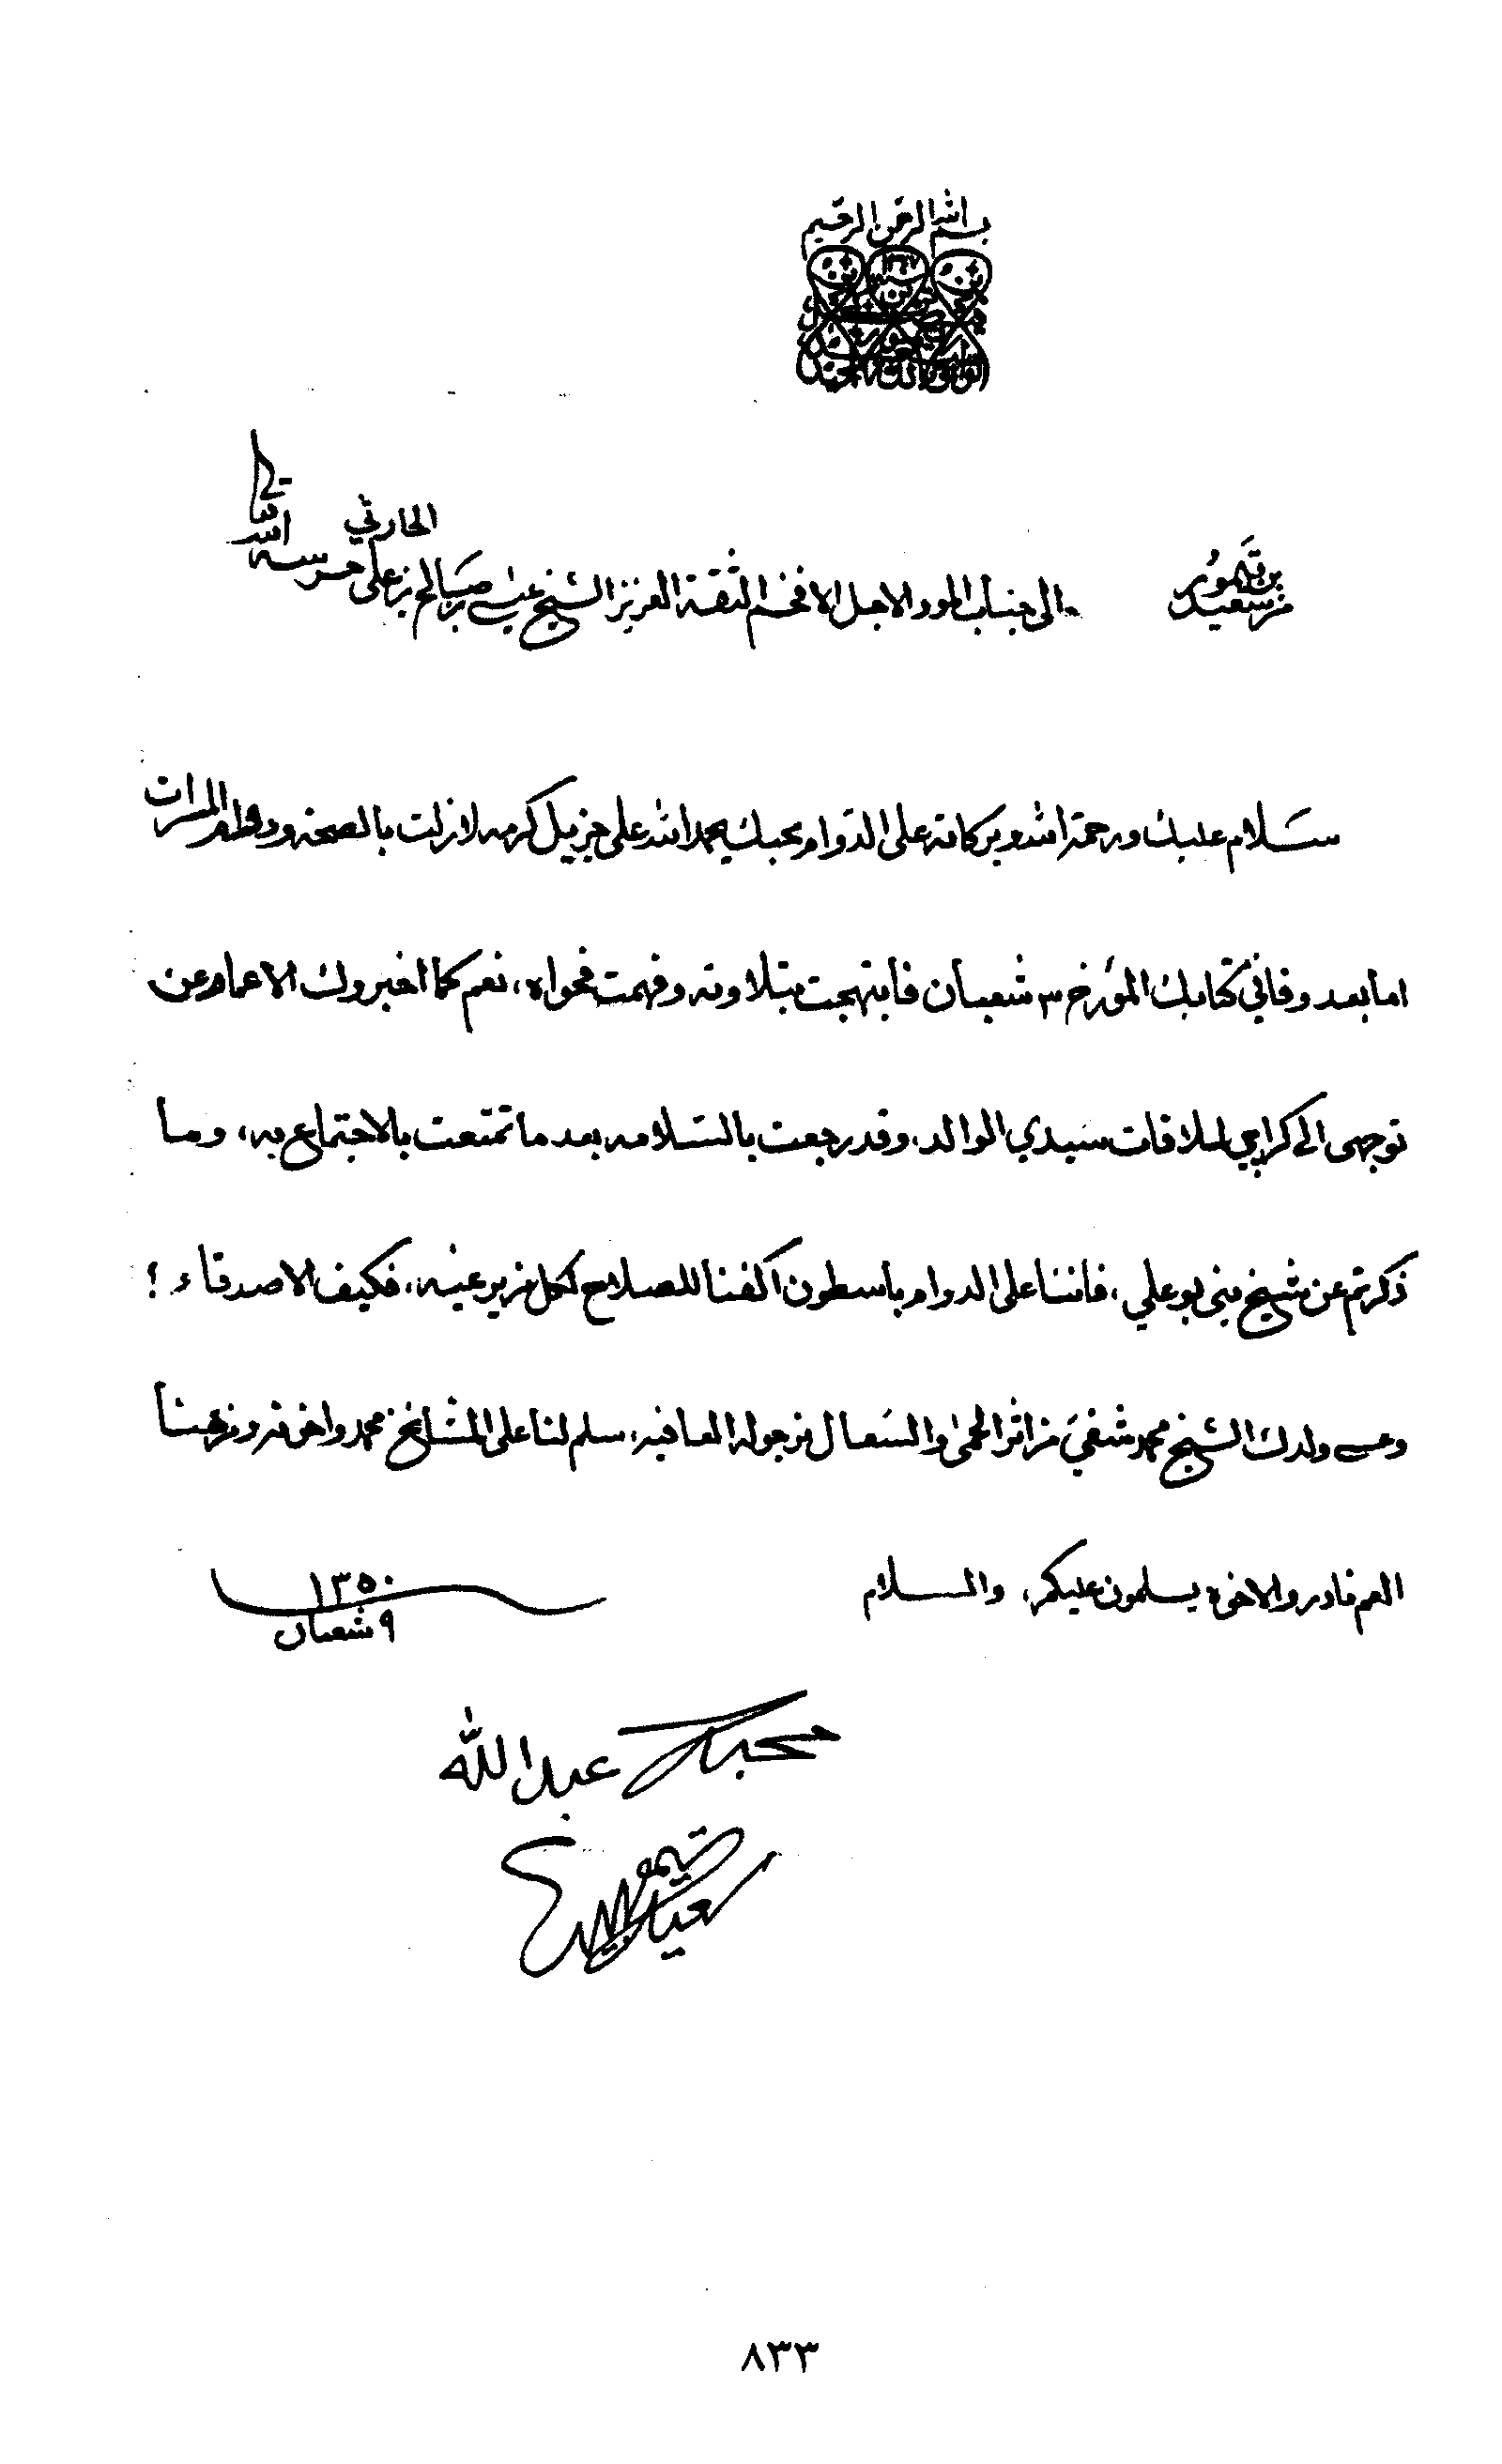 بسم الله الرحمن الرحيم
١٣٤٧
من سعيد بن تيمور
الى جناب المود الاجل الافخم الثقة العزيز الشيخ عيسى بن صالح بن علي الحارثي حرسه الله تعالى
سلام عليك ورحمة الله وبركاته على الدوام محبك بحمد الله على جزيل كرمه لا زلت بالصحة ودوام المسرات
اما بعد وفاني كتابك المؤرخ ٣ شعبان فأبتهجت بتلاوته وفهمت فحواه، نعم كما اخبروك الاعمام عن
توجهى الى كراچي لملاقات سيدي الوالد، وقد رجعت بالسلامه بعد ما تمتعت بالاجتماع به، وما
ذكرتم عن شيخ بنى بو علي، فاننا على الدوام باسطون اكفنا للصلاح لكل من يرغبه، فكيف الاصدقاء ؟
وعسى ولدك الشيخ محمد شفي من اثر الحمى والسعال نرجو له العافيه، سلم لنا على المشايخ محمد واخوته ومن هنا
العم نادر والاخوة يسلمون عليكم، والسلام
٩ شعبان ١٣٥٠
محبك عبدالله
سعيد بن تيمور
٨٣٣